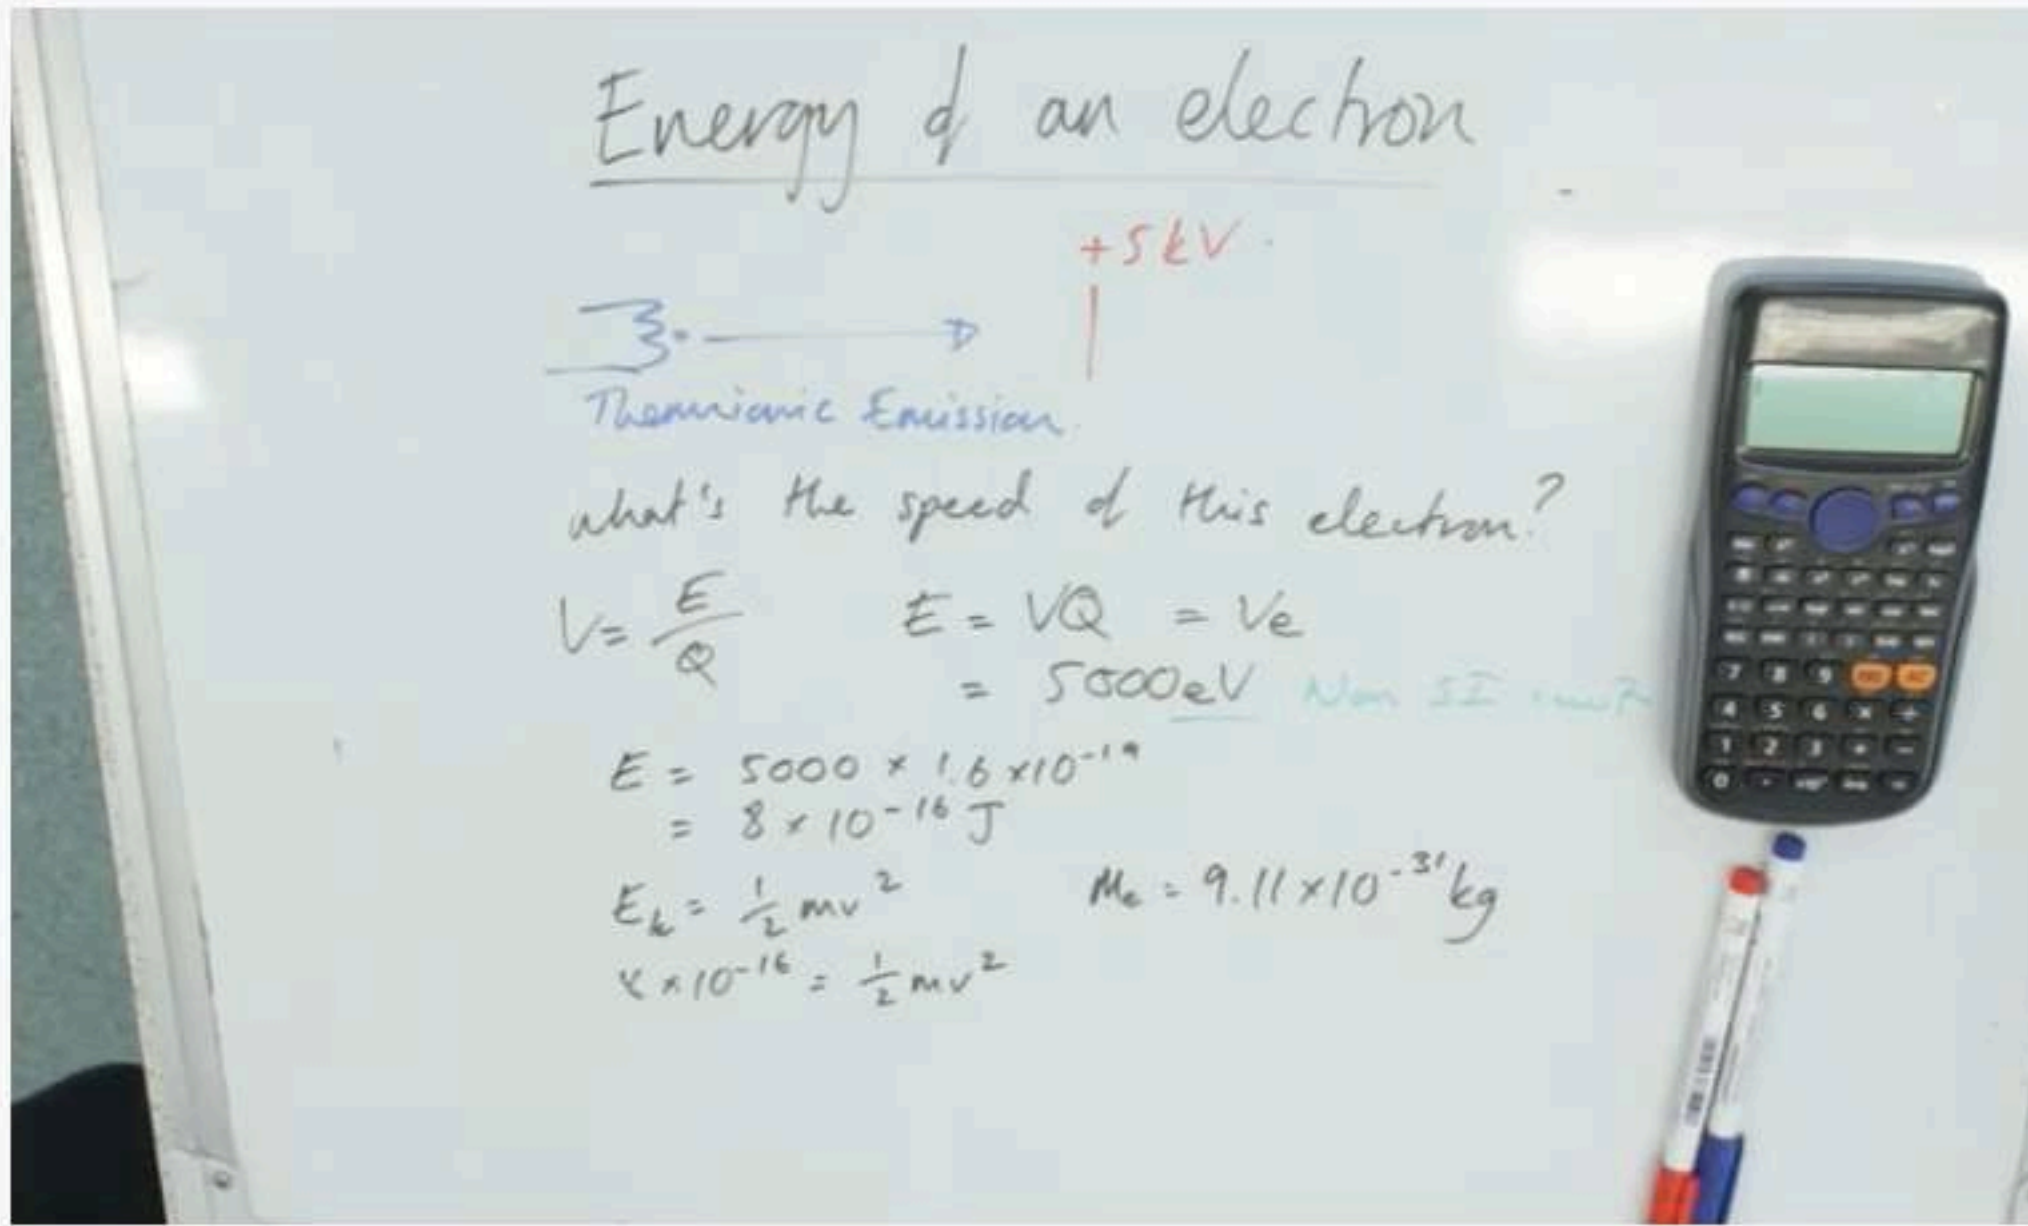 Energy of an electron
+5kV
Thermionic Emission
what's the speed of this electron?
V = E/Q E = VQ = Ve
= 5000eV Non SI unit
E = 5000 × 1.6 × 10⁻¹⁹
= 8 × 10⁻¹⁶ J
Eₖ = ½ mv² Mₑ = 9.11 × 10⁻³¹ kg
8 × 10⁻¹⁶ = ½ mv²
7 8 9
4 5 6 × ÷
1 2 3 + −
0 .